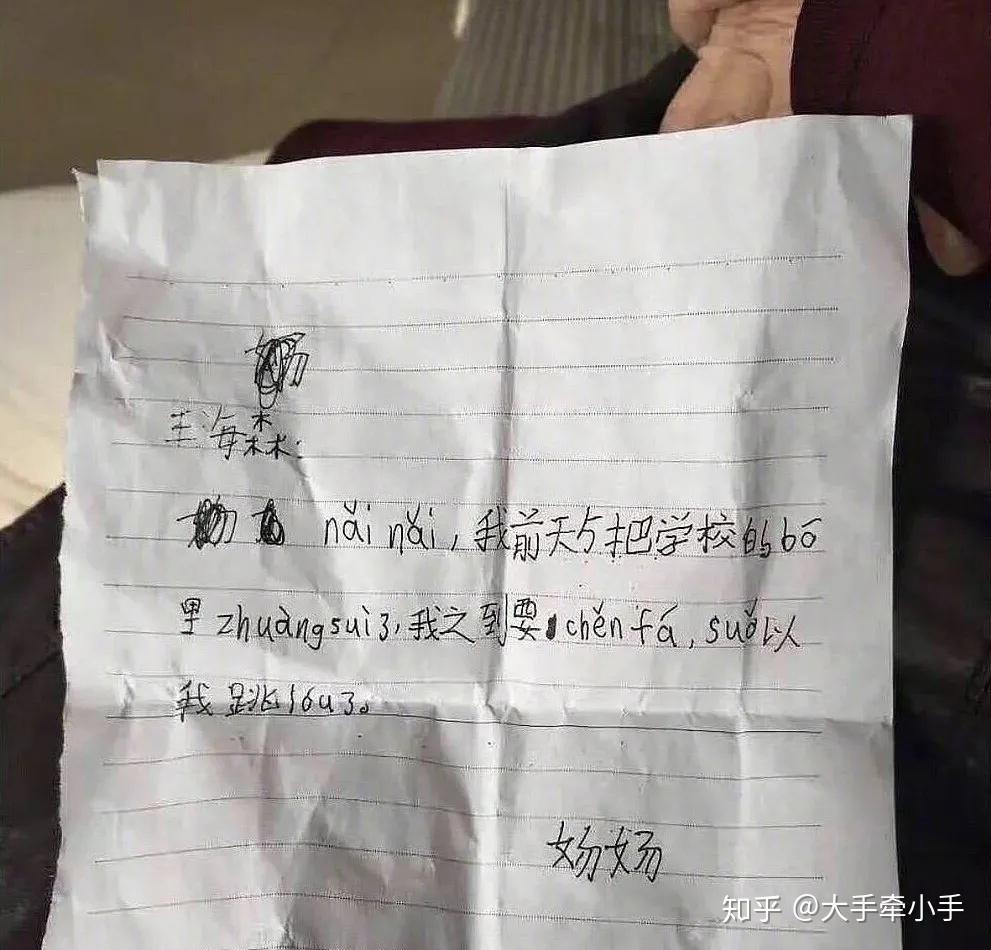 王海森:
nǎi nǎi,我前天与把学校的bō
里zhuàngsuì了,我之到要chěnfá,suǒ以
我跳lóu了。
妫妫
知乎 @大手牵小手